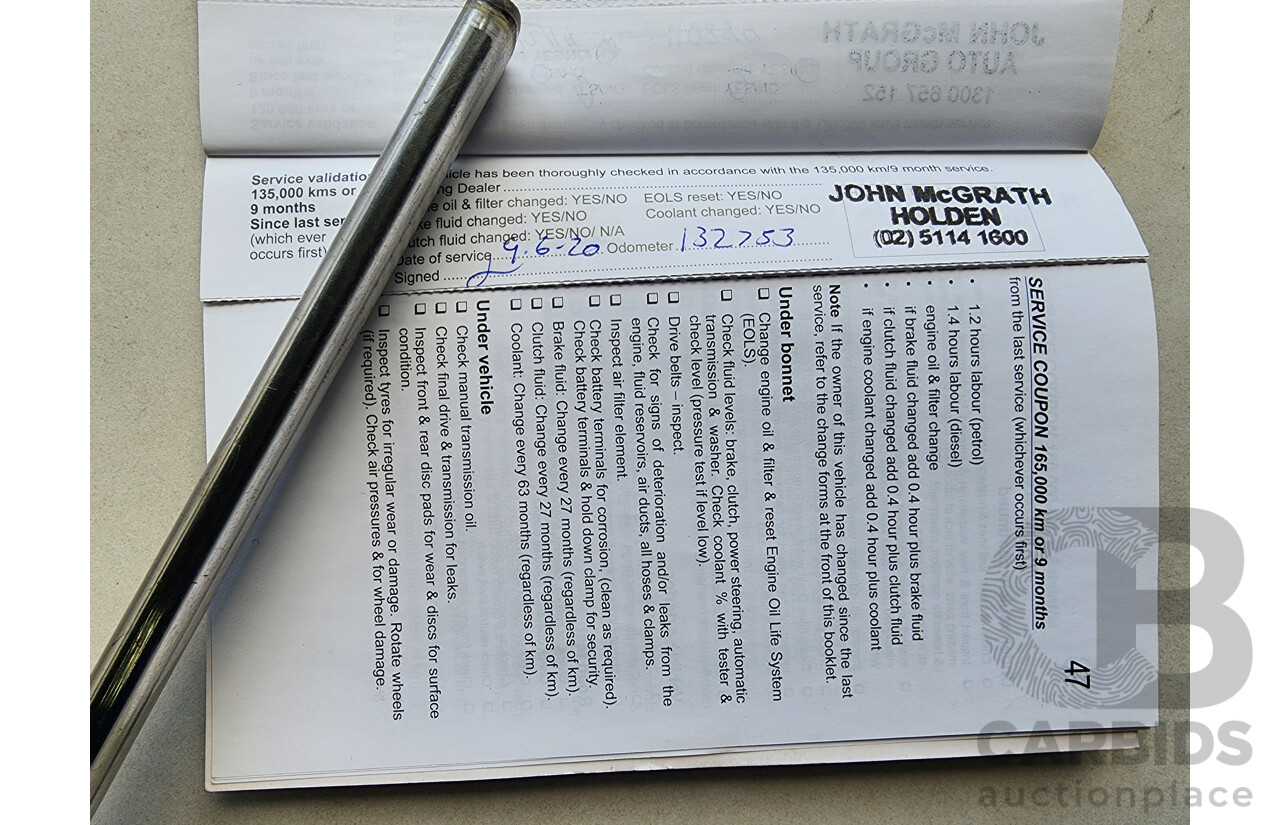 JOHN McGRATH
AUTO GROUP
1300 657 152
Service validation
135,000 kms or
9 months
Since last ser
(which ever
occurs first)
icle has been thoroughly checked in accordance with the 135,000 km/9 month service.
ng Dealer
e oil & filter changed: YES/NO EOLS reset: YES/NO
ke fluid changed: YES/NO Coolant changed: YES/NO
utch fluid changed: YES/NO/ N/A
Date of service 9.6-20 Odometer 132753
Signed
JOHN McGRATH
HOLDEN
(02) 5114 1600
47
SERVICE COUPON 165,000 km or 9 months
from the last service (whichever occurs first)
• 1.2 hours labour (petrol)
• 1.4 hours labour (diesel)
• engine oil & filter change
• if brake fluid changed add 0.4 hour plus brake fluid
• if clutch fluid changed add 0.4 hour plus clutch fluid
• if engine coolant changed add 0.4 hour plus coolant
Note If the owner of this vehicle has changed since the last
service, refer to the change forms at the front of this booklet.
Under bonnet
❑ Change engine oil & filter & reset Engine Oil Life System
(EOLS).
❑ Check fluid levels: brake, clutch, power steering, automatic
transmission & washer. Check coolant % with tester &
check level (pressure test if level low).
❑ Drive belts – inspect.
❑ Check for signs of deterioration and/or leaks from the
engine fluid reservoirs, air ducts, all hoses & clamps.
❑ Inspect air filter element.
❑ Check battery terminals for corrosion, (clean as required).
Check battery terminals & hold down clamp for security.
❑ Brake fluid: Change every 27 months (regardless of km).
❑ Clutch fluid: Change every 27 months (regardless of km).
❑ Coolant: Change every 63 months (regardless of km).
Under vehicle
❑ Check manual transmission oil.
❑ Check final drive & transmission for leaks.
❑ Inspect front & rear disc pads for wear & discs for surface
condition.
❑ Inspect tyres for irregular wear or damage. Rotate wheels
(if required). Check air pressures & for wheel damage.
CARBIDS
auctionplace